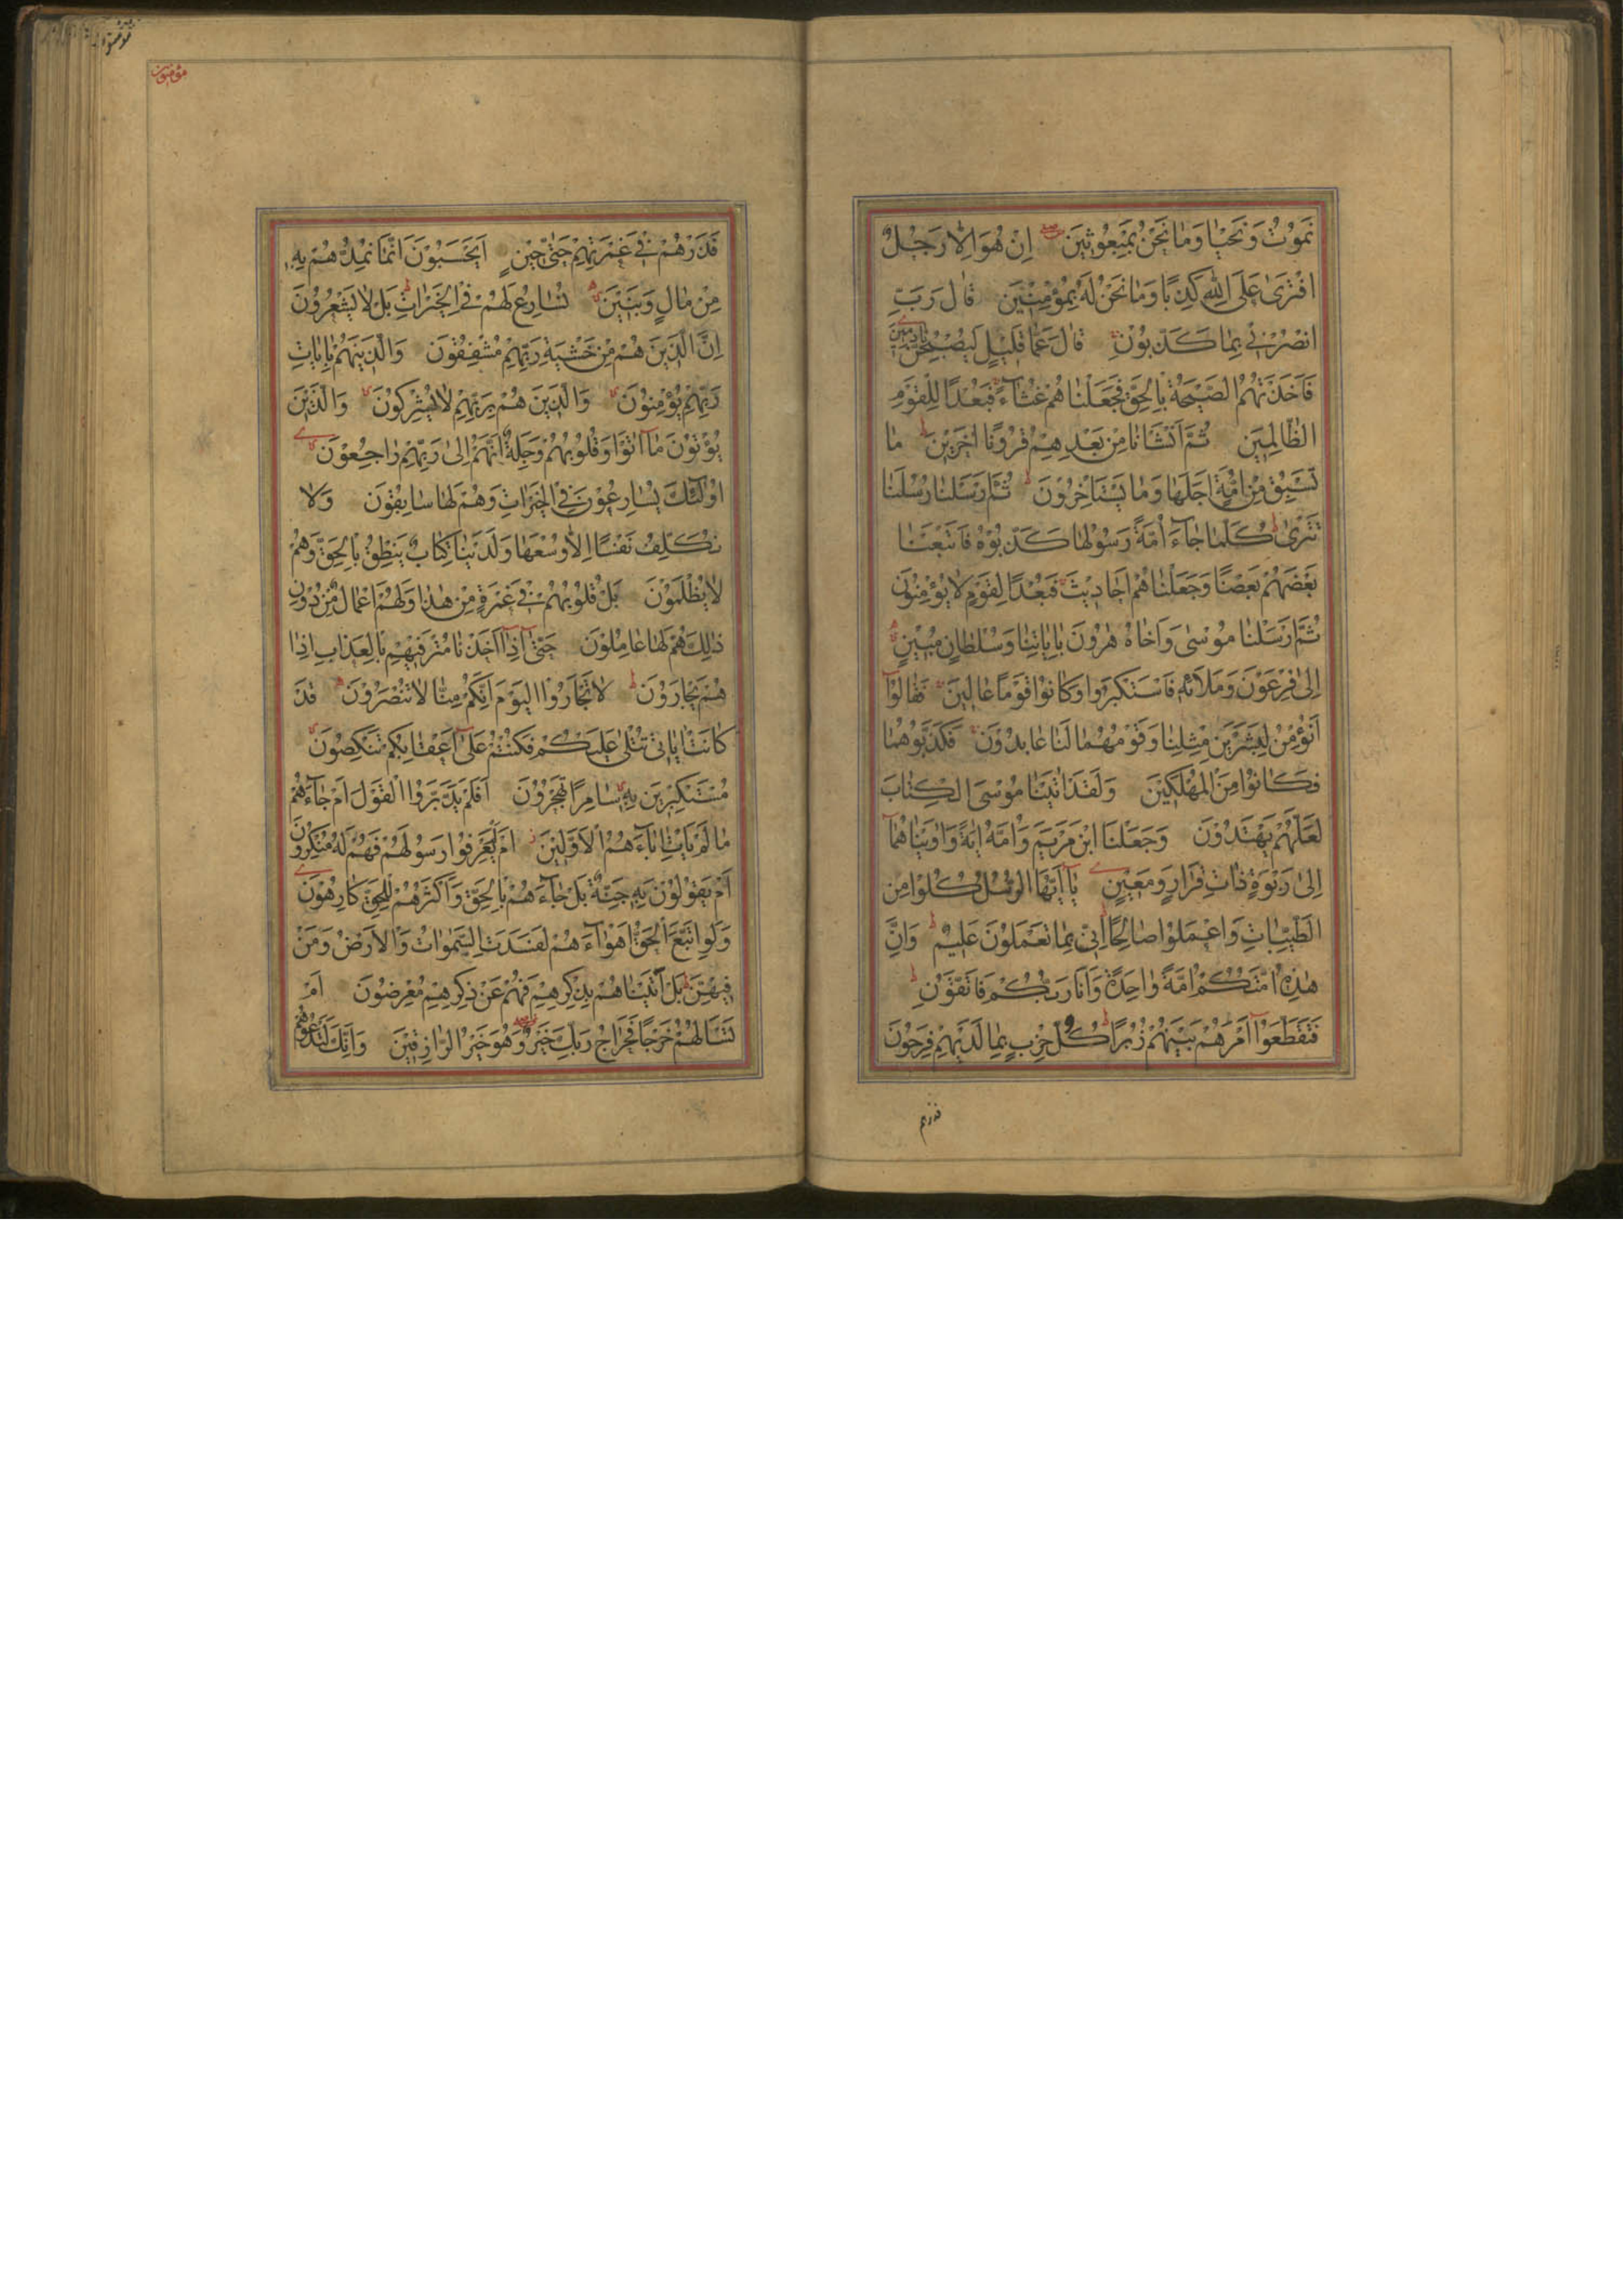 نَمُوتُ وَنَحْيَا وَمَا نَحْنُ بِمَبْعُوثِينَ اِنْ هُوَ اِلَّا رَجُلٌ
افْتَرٰى عَلَى اللّٰهِ كَذِبًا وَمَا نَحْنُ لَهُ بِمُؤْمِنِينَ قَالَ رَبِّ
انْصُرْنِي بِمَا كَذَّبُوْنِ قَالَ عَمَّا قَلِيْلٍ لَيُصْبِحُنَّ نَادِمِينَ
فَاَخَذَتْهُمُ الصَّيْحَةُ بِالْحَقِّ فَجَعَلْنَاهُمْ غُثَآءً فَبُعْدًا لِلْقَوْمِ
الظَّالِمِينَ ثُمَّ اَنْشَأْنَا مِنْ بَعْدِهِمْ قُرُونًا اٰخَرِيْنَ مَا
تَسْبِقُ مِنْ اُمَّةٍ اَجَلَهَا وَمَا يَسْتَأْخِرُوْنَ ثُمَّ اَرْسَلْنَا رُسُلَنَا
تَتْرٰى كُلَّمَا جَآءَ اُمَّةً رَسُولُهَا كَذَّبُوْهُ فَاَتْبَعْنَا
بَعْضَهُمْ بَعْضًا وَجَعَلْنَاهُمْ اَحَادِيْثَ فَبُعْدًا لِقَوْمٍ لَا يُؤْمِنُونَ
ثُمَّ اَرْسَلْنَا مُوْسٰى وَاَخَاهُ هٰرُونَ بِاٰيَاتِنَا وَسُلْطَانٍ مُبِيْنٍ
اِلٰى فِرْعَوْنَ وَمَلَائِهِ فَاسْتَكْبَرُوا وَكَانُوْا قَوْمًا عَالِينَ فَقَالُوْآ
اَنُؤْمِنُ لِبَشَرَيْنِ مِثْلِنَا وَقَوْمُهُمَا لَنَا عَابِدُوْنَ فَكَذَّبُوهُمَا
فَكَانُوْا مِنَ الْمُهْلَكِيْنَ وَلَقَدْ اٰتَيْنَا مُوْسَى الْكِتَابَ
لَعَلَّهُمْ يَهْتَدُوْنَ وَجَعَلْنَا ابْنَ مَرْيَمَ وَاُمَّهُ اٰيَةً وَاٰوَيْنَاهُمَآ
اِلٰى رَبْوَةٍ ذَاتِ قَرَارٍ وَمَعِيْنٍ يَآ اَيُّهَا الرُّسُلُ كُلُوْا مِنَ
الطَّيِّبَاتِ وَاعْمَلُوْا صَالِحًا اِنِّي بِمَا تَعْمَلُوْنَ عَلِيْمٌ وَاِنَّ
هٰذِهٖ اُمَّتُكُمْ اُمَّةً وَاحِدَةً وَاَنَا رَبُّكُمْ فَاتَّقُوْنِ
فَتَقَطَّعُوْآ اَمْرَهُمْ بَيْنَهُمْ زُبُرًا كُلُّ حِزْبٍ بِمَا لَدَيْهِمْ فَرِحُوْنَ
فذرهم
مؤمنون
فَذَرْهُمْ فِي غَمْرَتِهِمْ حَتّٰى حِيْنٍ اَيَحْسَبُوْنَ اَنَّمَا نُمِدُّهُمْ بِهٖ
مِنْ مَالٍ وَبَنِيْنَ نُسَارِعُ لَهُمْ فِي الْخَيْرَاتِ بَلْ لَا يَشْعُرُوْنَ
اِنَّ الَّذِيْنَ هُمْ مِنْ خَشْيَةِ رَبِّهِمْ مُشْفِقُوْنَ وَالَّذِيْنَ هُمْ بِاٰيَاتِ
رَبِّهِمْ يُؤْمِنُوْنَ وَالَّذِيْنَ هُمْ بِرَبِّهِمْ لَا يُشْرِكُوْنَ وَالَّذِيْنَ
يُؤْتُوْنَ مَآ اٰتَوْا وَقُلُوبُهُمْ وَجِلَةٌ اَنَّهُمْ اِلٰى رَبِّهِمْ رَاجِعُوْنَ
اُولٰٓئِكَ يُسَارِعُوْنَ فِي الْخَيْرَاتِ وَهُمْ لَهَا سَابِقُوْنَ وَلَا
نُكَلِّفُ نَفْسًا اِلَّا وُسْعَهَا وَلَدَيْنَا كِتَابٌ يَنْطِقُ بِالْحَقِّ وَهُمْ
لَا يُظْلَمُوْنَ بَلْ قُلُوْبُهُمْ فِي غَمْرَةٍ مِنْ هٰذَا وَلَهُمْ اَعْمَالٌ مِنْ دُوْنِ
ذٰلِكَ هُمْ لَهَا عَامِلُوْنَ حَتّٰىٓ اِذَآ اَخَذْنَا مُتْرَفِيْهِمْ بِالْعَذَابِ اِذَا
هُمْ يَجْاَرُوْنَ لَا تَجْاَرُوا الْيَوْمَ اِنَّكُمْ مِنَّا لَا تُنْصَرُوْنَ قَدْ
كَانَتْ اٰيَاتِي تُتْلٰى عَلَيْكُمْ فَكُنْتُمْ عَلٰىٓ اَعْقَابِكُمْ تَنْكِصُوْنَ
مُسْتَكْبِرِيْنَ بِهٖ سَامِرًا تَهْجُرُوْنَ اَفَلَمْ يَدَّبَّرُوا الْقَوْلَ اَمْ جَآءَهُمْ
مَا لَمْ يَأْتِ اٰبَآءَهُمُ الْاَوَّلِيْنَ اَمْ لَمْ يَعْرِفُوْا رَسُوْلَهُمْ فَهُمْ لَهُ مُنْكِرُوْنَ
اَمْ يَقُوْلُوْنَ بِهٖ جِنَّةٌ بَلْ جَآءَهُمْ بِالْحَقِّ وَاَكْثَرُهُمْ لِلْحَقِّ كَارِهُوْنَ
وَلَوِ اتَّبَعَ الْحَقُّ اَهْوَآءَهُمْ لَفَسَدَتِ السَّمٰوَاتُ وَالْاَرْضُ وَمَنْ
فِيْهِنَّ بَلْ اَتَيْنَاهُمْ بِذِكْرِهِمْ فَهُمْ عَنْ ذِكْرِهِمْ مُعْرِضُوْنَ اَمْ
تَسْاَلُهُمْ خَرْجًا فَخَرَاجُ رَبِّكَ خَيْرٌ وَهُوَ خَيْرُ الرَّازِقِيْنَ وَاِنَّكَ لَتَدْعُوْهُمْ